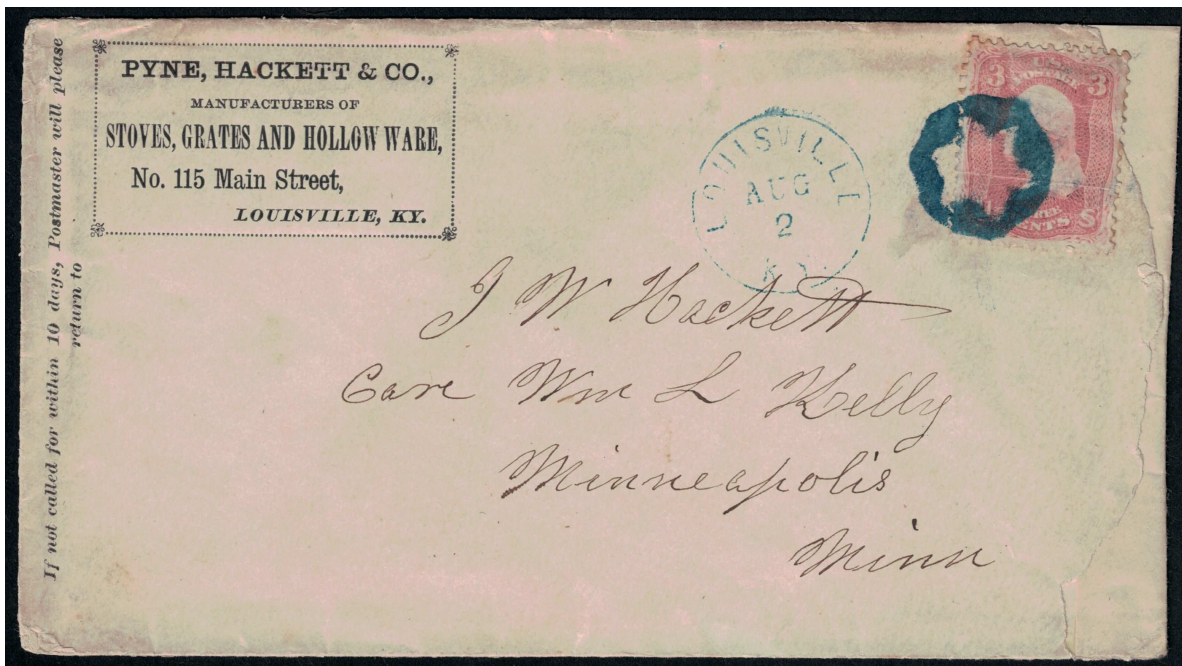 If not called for within 10 days, Postmaster will please
return to
PYNE, HACKETT & CO.,
MANUFACTURERS OF
STOVES, GRATES AND HOLLOW WARE,
No. 115 Main Street,
LOUISVILLE, KY.
LOUISVILLE
AUG
2
KY
3 3
J W Hackett
Care Wm L Kelly
Minneapolis
Minn